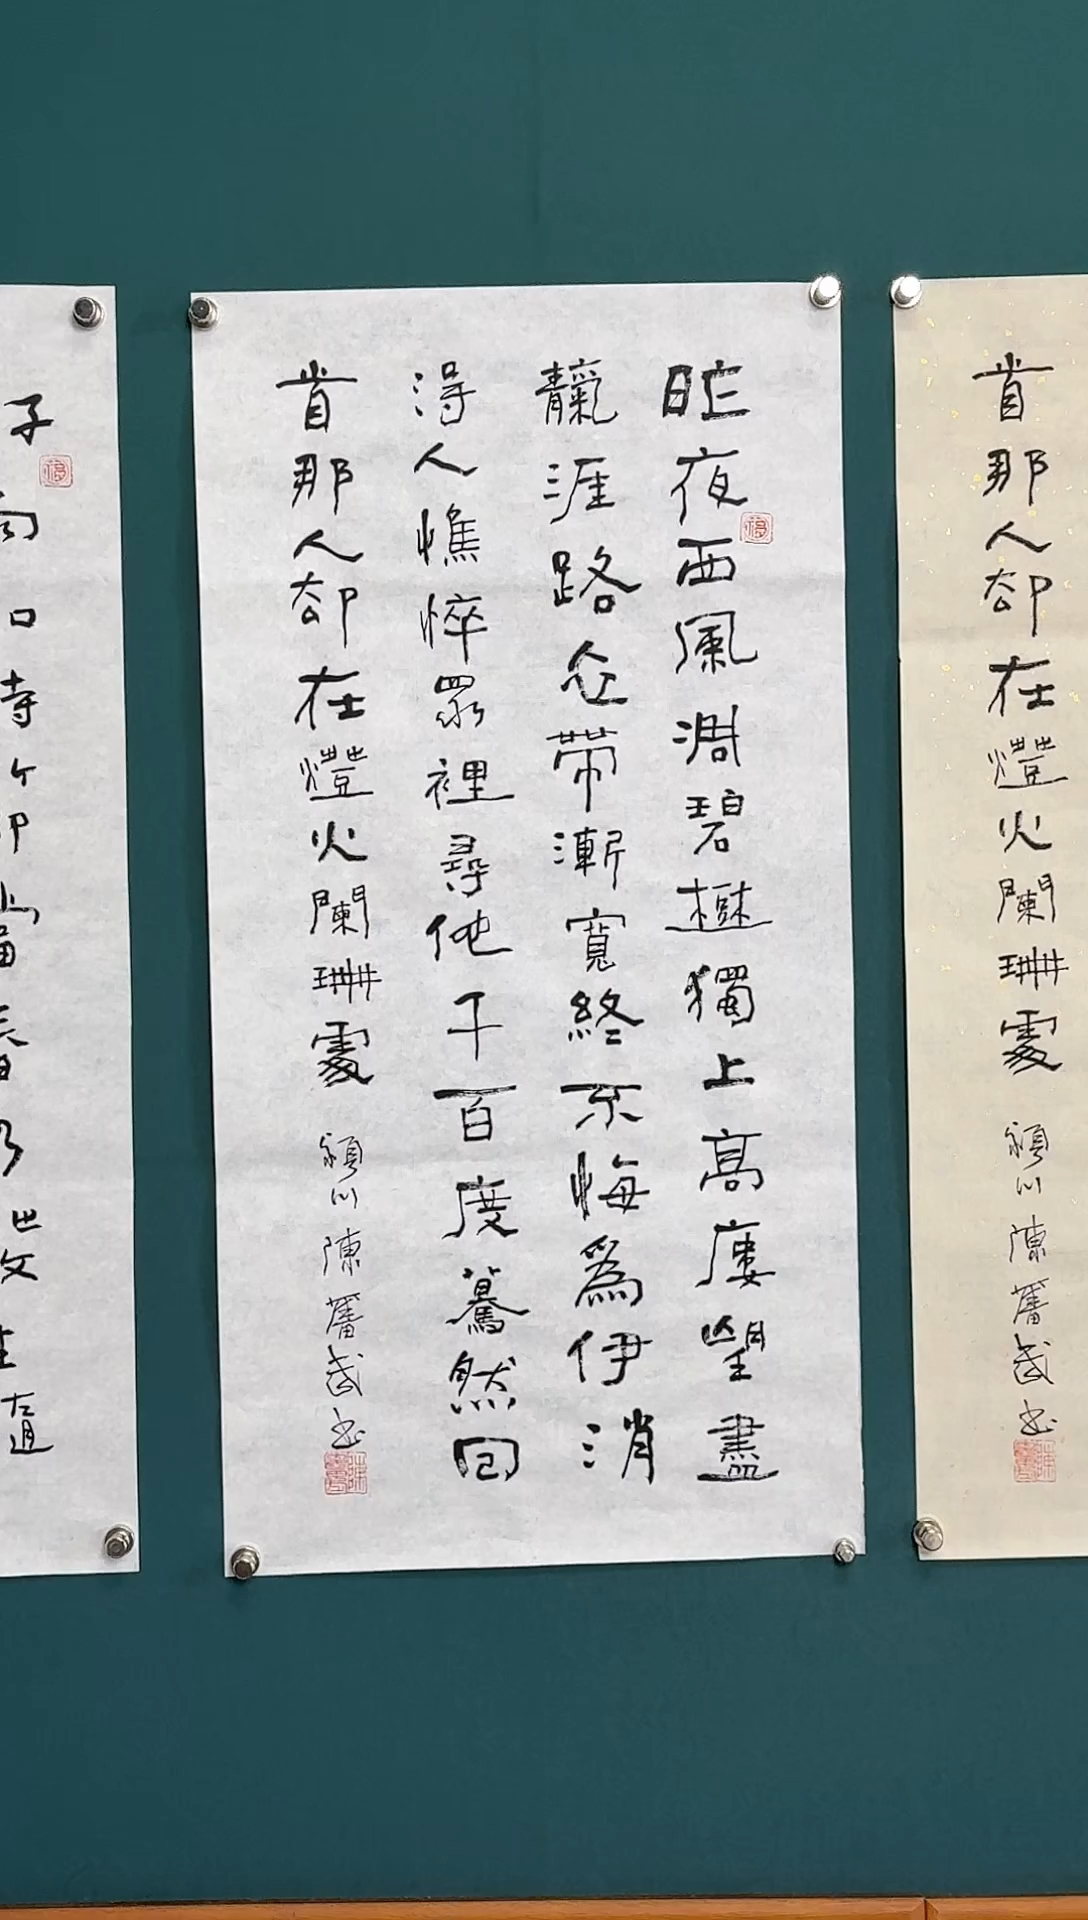 首那人卻在燈火闌珊處 潁川陳
昨夜西風淍碧樹獨上高樓望盡
靝涯路衣帶漸寬終不悔為伊消
得人憔悴眾裡尋他千百度驀然回
首那人卻在燈火闌珊處 潁川陳
子